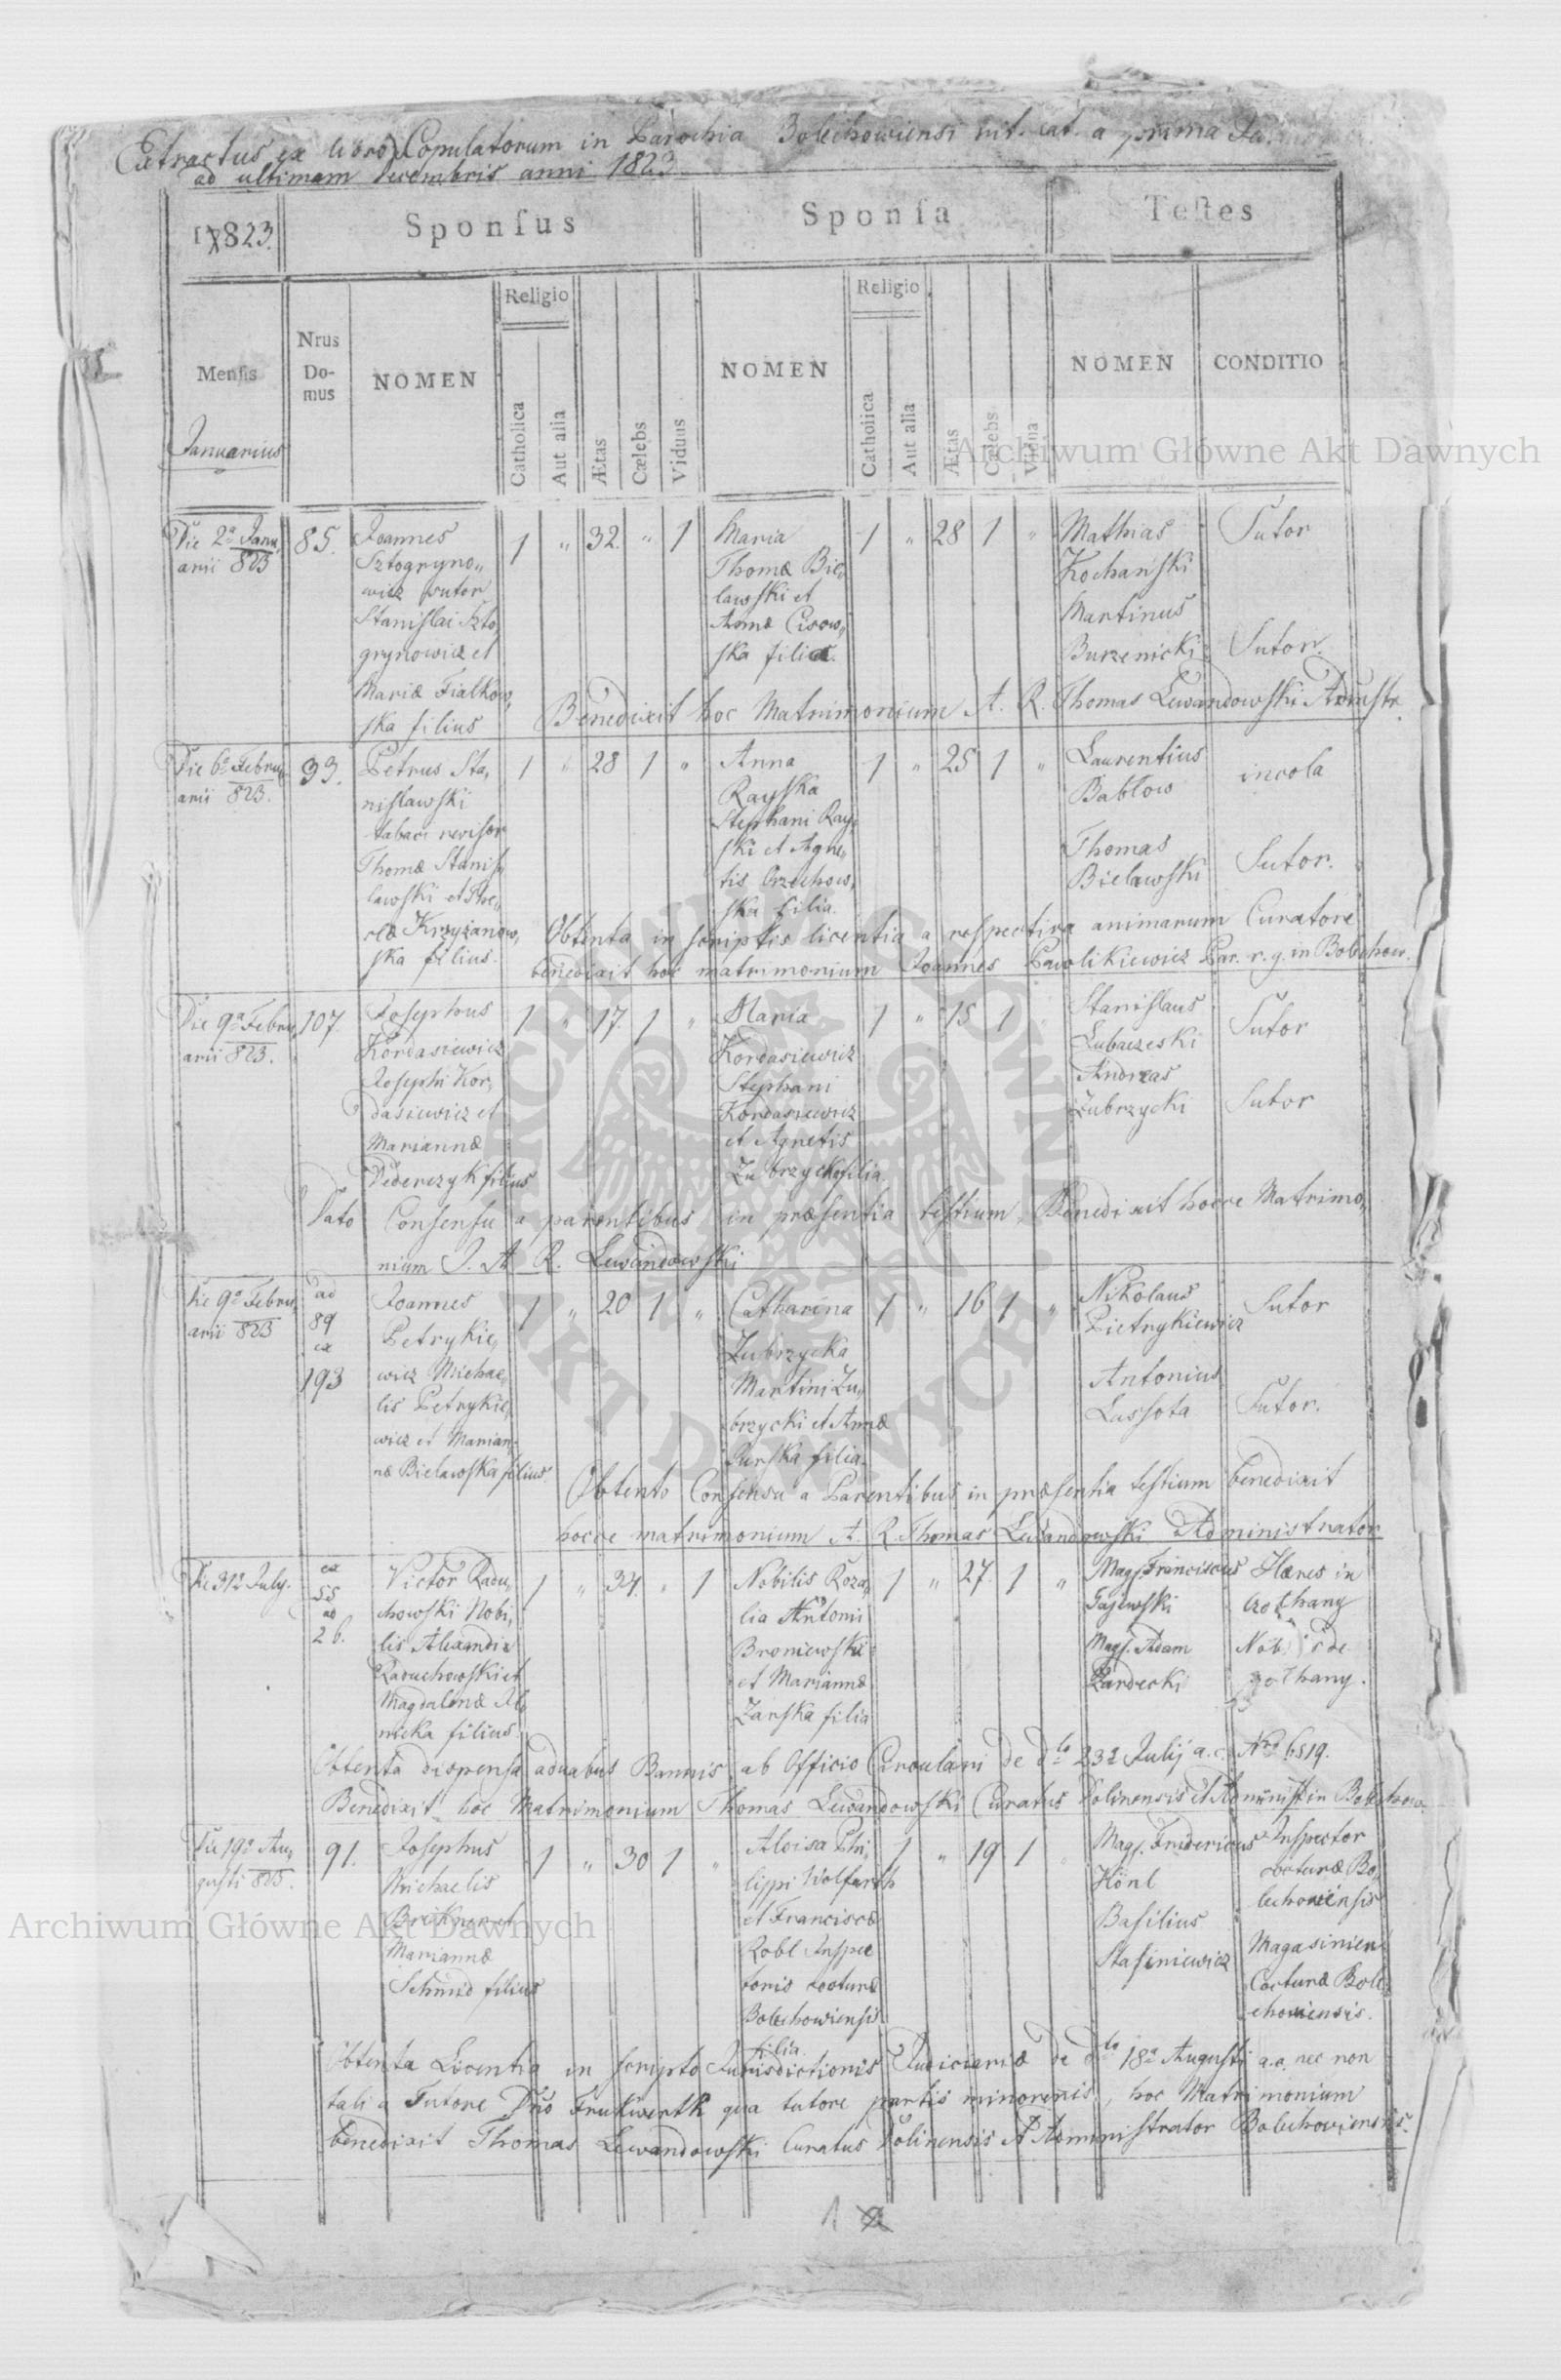 Extractus ex libro Copulatorum in Parochia Bolechowiensi rit. lat. a prima
ad ultimam Decembris anni 1823.
1823. Sponſus Sponſa Teſtes
Menſis
Januarius
Nrus Do-
mus
NOMEN
Religio
Catholica
Aut alia
Ætas
Cælebs
Viduus
NOMEN
Religio
Catholica
Aut alia
Ætas
Cælebs
Vidua
NOMEN
CONDITIO
Die 2a Janu,
arii 823
85.
Joannes
Sztogryno,,
wicz sutor
Stanislai Szto,
grynowicz et
Mariæ Fialkow,
ska filius
1 " 32. " 1
Maria
Thomæ Bie,
lawski et
Annæ Cisow,
ska filia.
1 " 28 1 "
Mathias
Kochański
Martinus
Burzenicki
Sutor
Sutor.
Benedixit hoc Matrimonium A. R. Thomas Lewandowski Admstr.
Die 6a Febru,
arii 823.
33.
Petrus Sta,
nislawski
tabaci revisor
Thomæ Stanis,
lawski et
Krzyżanow,
ska filius.
1 " 28 1 "
Anna
Rayska
Stephani Ray,
ski et Agne,,
tis Orzechow,
ska filia.
1 " 25 1 "
Laurentius
Bablow
Thomas
Bielawski
incola
Sutor.
Obtenta in scriptis licentia a respectiva animarum Curatore
benedixit hoc matrimonium Joannes Pawlikiewicz Par. r. g. in Bolechow.
Die 9a Febru,
arii 823.
107.
Josephus
Kordasiewicz
Josephi Kor,
dasiewicz et
Mariannæ
Federczyk filius
1 " 17. 1 "
Maria
Kordasiewicz
Stephani
Kordasiewicz
et Agnetis
Zubrzycka filia.
1 " 15 1
Stanislaus
Lubaczeski
Andreas
Zubrzycki
Sutor
Sutor
Dato Consensu a parentibus in præsentia testium, Benedixit hocce Matrimo,
nium J. A R. Lewandowski
Die 9a Febru,
arii 823
ad
89
ex
193
Joannes
Petrykie,
wicz Michae,
lis Petrykie,
wicz et Marian,
næ Bielawska filius
1 " 20 1 "
Catharina
Zubrzycka
Martini Zu,
brzycki et Annæ
Jurska filia.
1 " 16 1 "
Nikolaus
Pietrykiewicz
Antonius
Lassota
Sutor
Sutor.
Obtento Consensu a Parentibus in præsentia testium benedixit
hocce matrimonium A. R. Thomas Lewandowski Administrator
Die 31a July.
ex
55
ad
26.
Victor Radu,
chowski Nobi,
lis Alexandri
Raduchowski et
Magdalenæ
nicka filius.
1 " 34. " 1
Nobilis Roza,
lia Antonii
Broniewski
et Mariannæ
Zarska filia
1 " 27. 1 "
Magf. Franciscus
Gajewski
Magf. Adam
Zardecki
Hæres in
Nob. de
Obtenta dispensa a duabus Bannis ab Officio Circulari de dto 23a Julij a. c. Nro 6519.
Benedixit hoc Matrimonium Thomas Lewandowski Curatus Dolinensis et Administ in Bolechow.
Die 19a Au,
gusti 823.
91.
Josephus
Michaelis
Brekner et
Mariannæ
Schmid filius
1 " 30 1 "
Aloisa Phi,
lippi Wolfarth
et Franciscæ
Robl Inspec
toris cocturæ
Bolechowiensis
filia.
1 " 19 1
Magf. Fridericus
Hönl
Basilius
Stasiniewicz
Inspector
cocturæ Bo,
lechowiensis
Magasinier
Cocturæ Bole,
chowiensis.
Obtenta Licentia in scripto Jurisdictionis Judiciariæ de dto 18a Augusti a. c. nec non
tali a Tutore Dno Frukwerth qua tutore partis minorenis, hoc Matrimonium
benedixit Thomas Lewandowski Curatus Dolinensis et Administrator Bolechoviensis.
1
Archiwum Główne Akt Dawnych
Archiwum Główne Akt Dawnych
ARCHIWUM GŁÓWNE AKT DAWNYCH